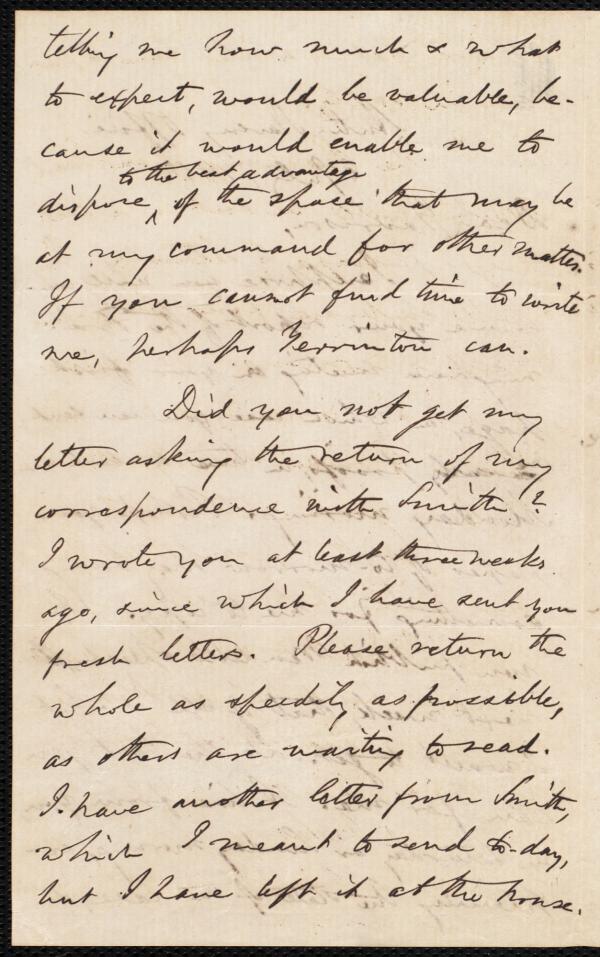 telling me how much & what
to expect, would be valuable, be-
cause it would enable me to
to the best advantage
dispose ^ of the space that may be
at my command for other matter.
If you cannot find time to write
me, perhaps Yerrinton can.
Did you not get my
letter asking the return of my
correspondence with Smith?
I wrote you at least three weeks
ago, since which I have sent you
fresh letters. Please return the
whole as speedily as possible,
as others are waiting to read.
I have another letter from Smith,
which I meant to send to-day,
but I have left it at the house.